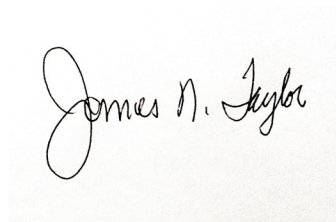 James N. Taylor